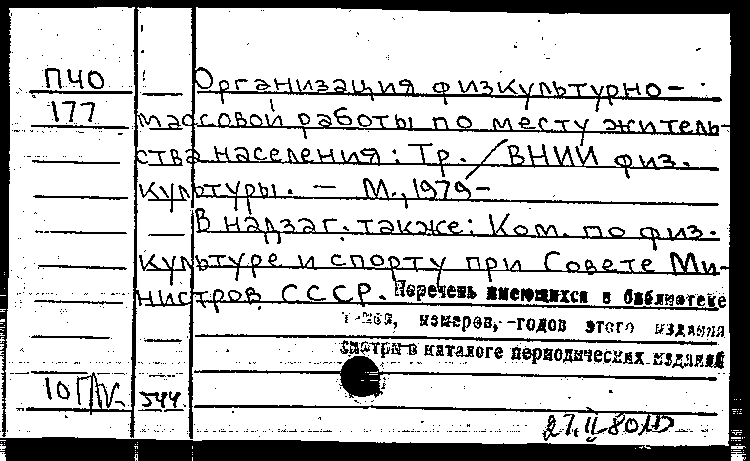 ПЧО
177
Организация физкультурно-
массовой работы по месту житель-
ства населения: Тр. / ВНИИ физ.
культуры. — М., 1979-
В надзаг. также: Ком. по физ.
культуре и спорту при Совете Ми-
нистров СССР. Перечень имеющихся в библиотеке
томов, номеров, -годов этого издания
смотри в каталоге периодических изданий
544
27.II 80